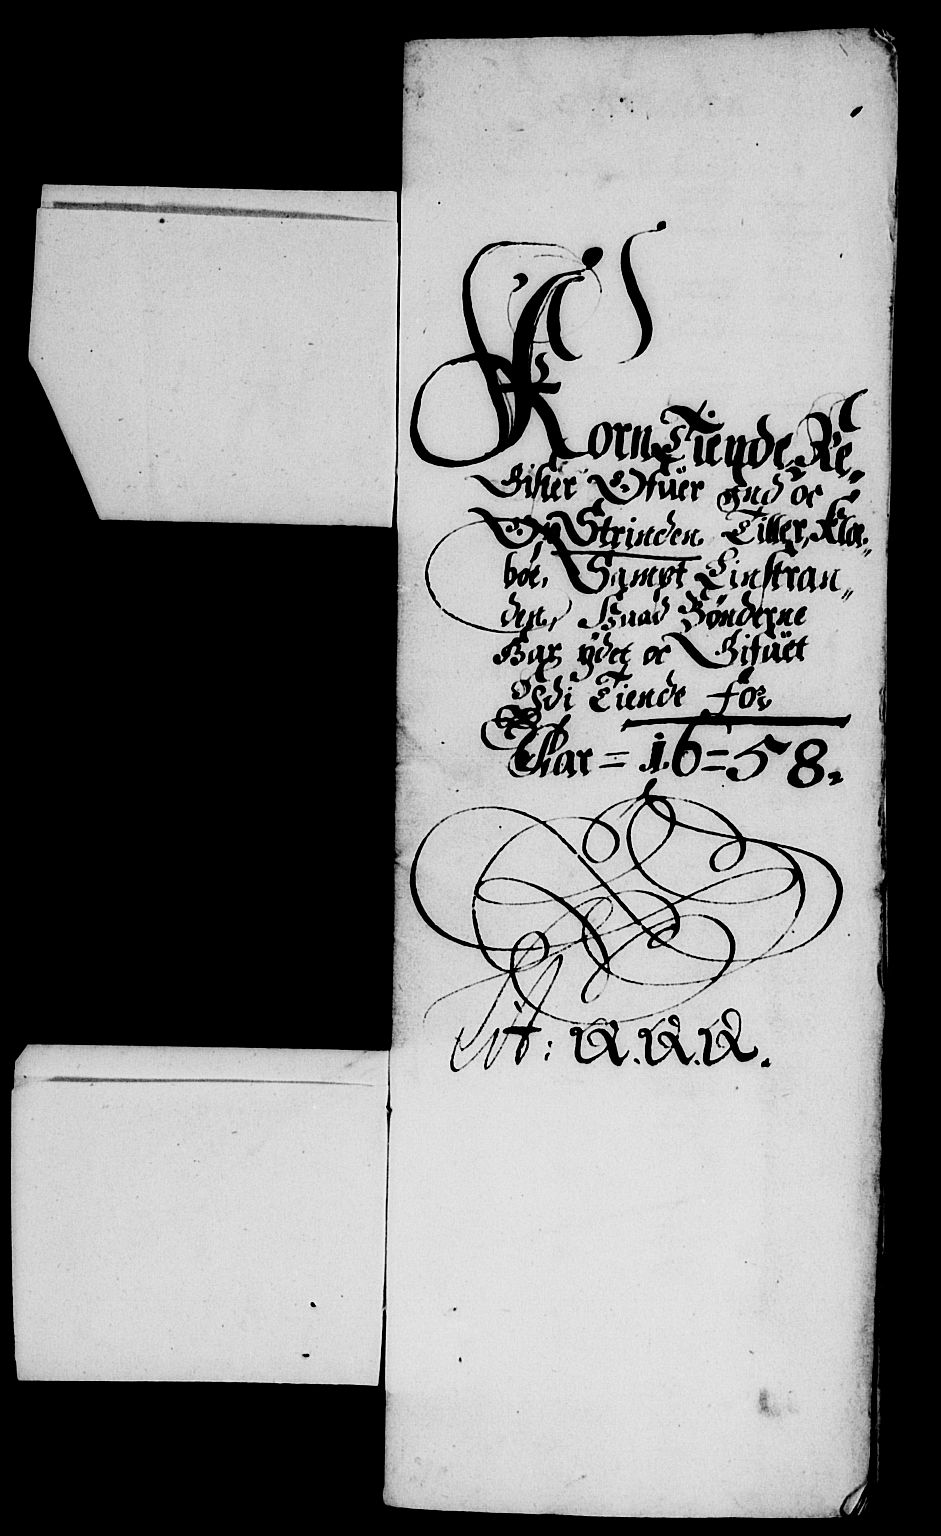 Korn Tiende Re„
gister Ofuer Ind oc
By Strinden, Tiller, Klæ„
boe, Sampt Leinstran„
den, Huad Bønderne
Har ydet oc Gifuet
Udi Tiende for
Aar = 16=58.
Lit: R. R. R.